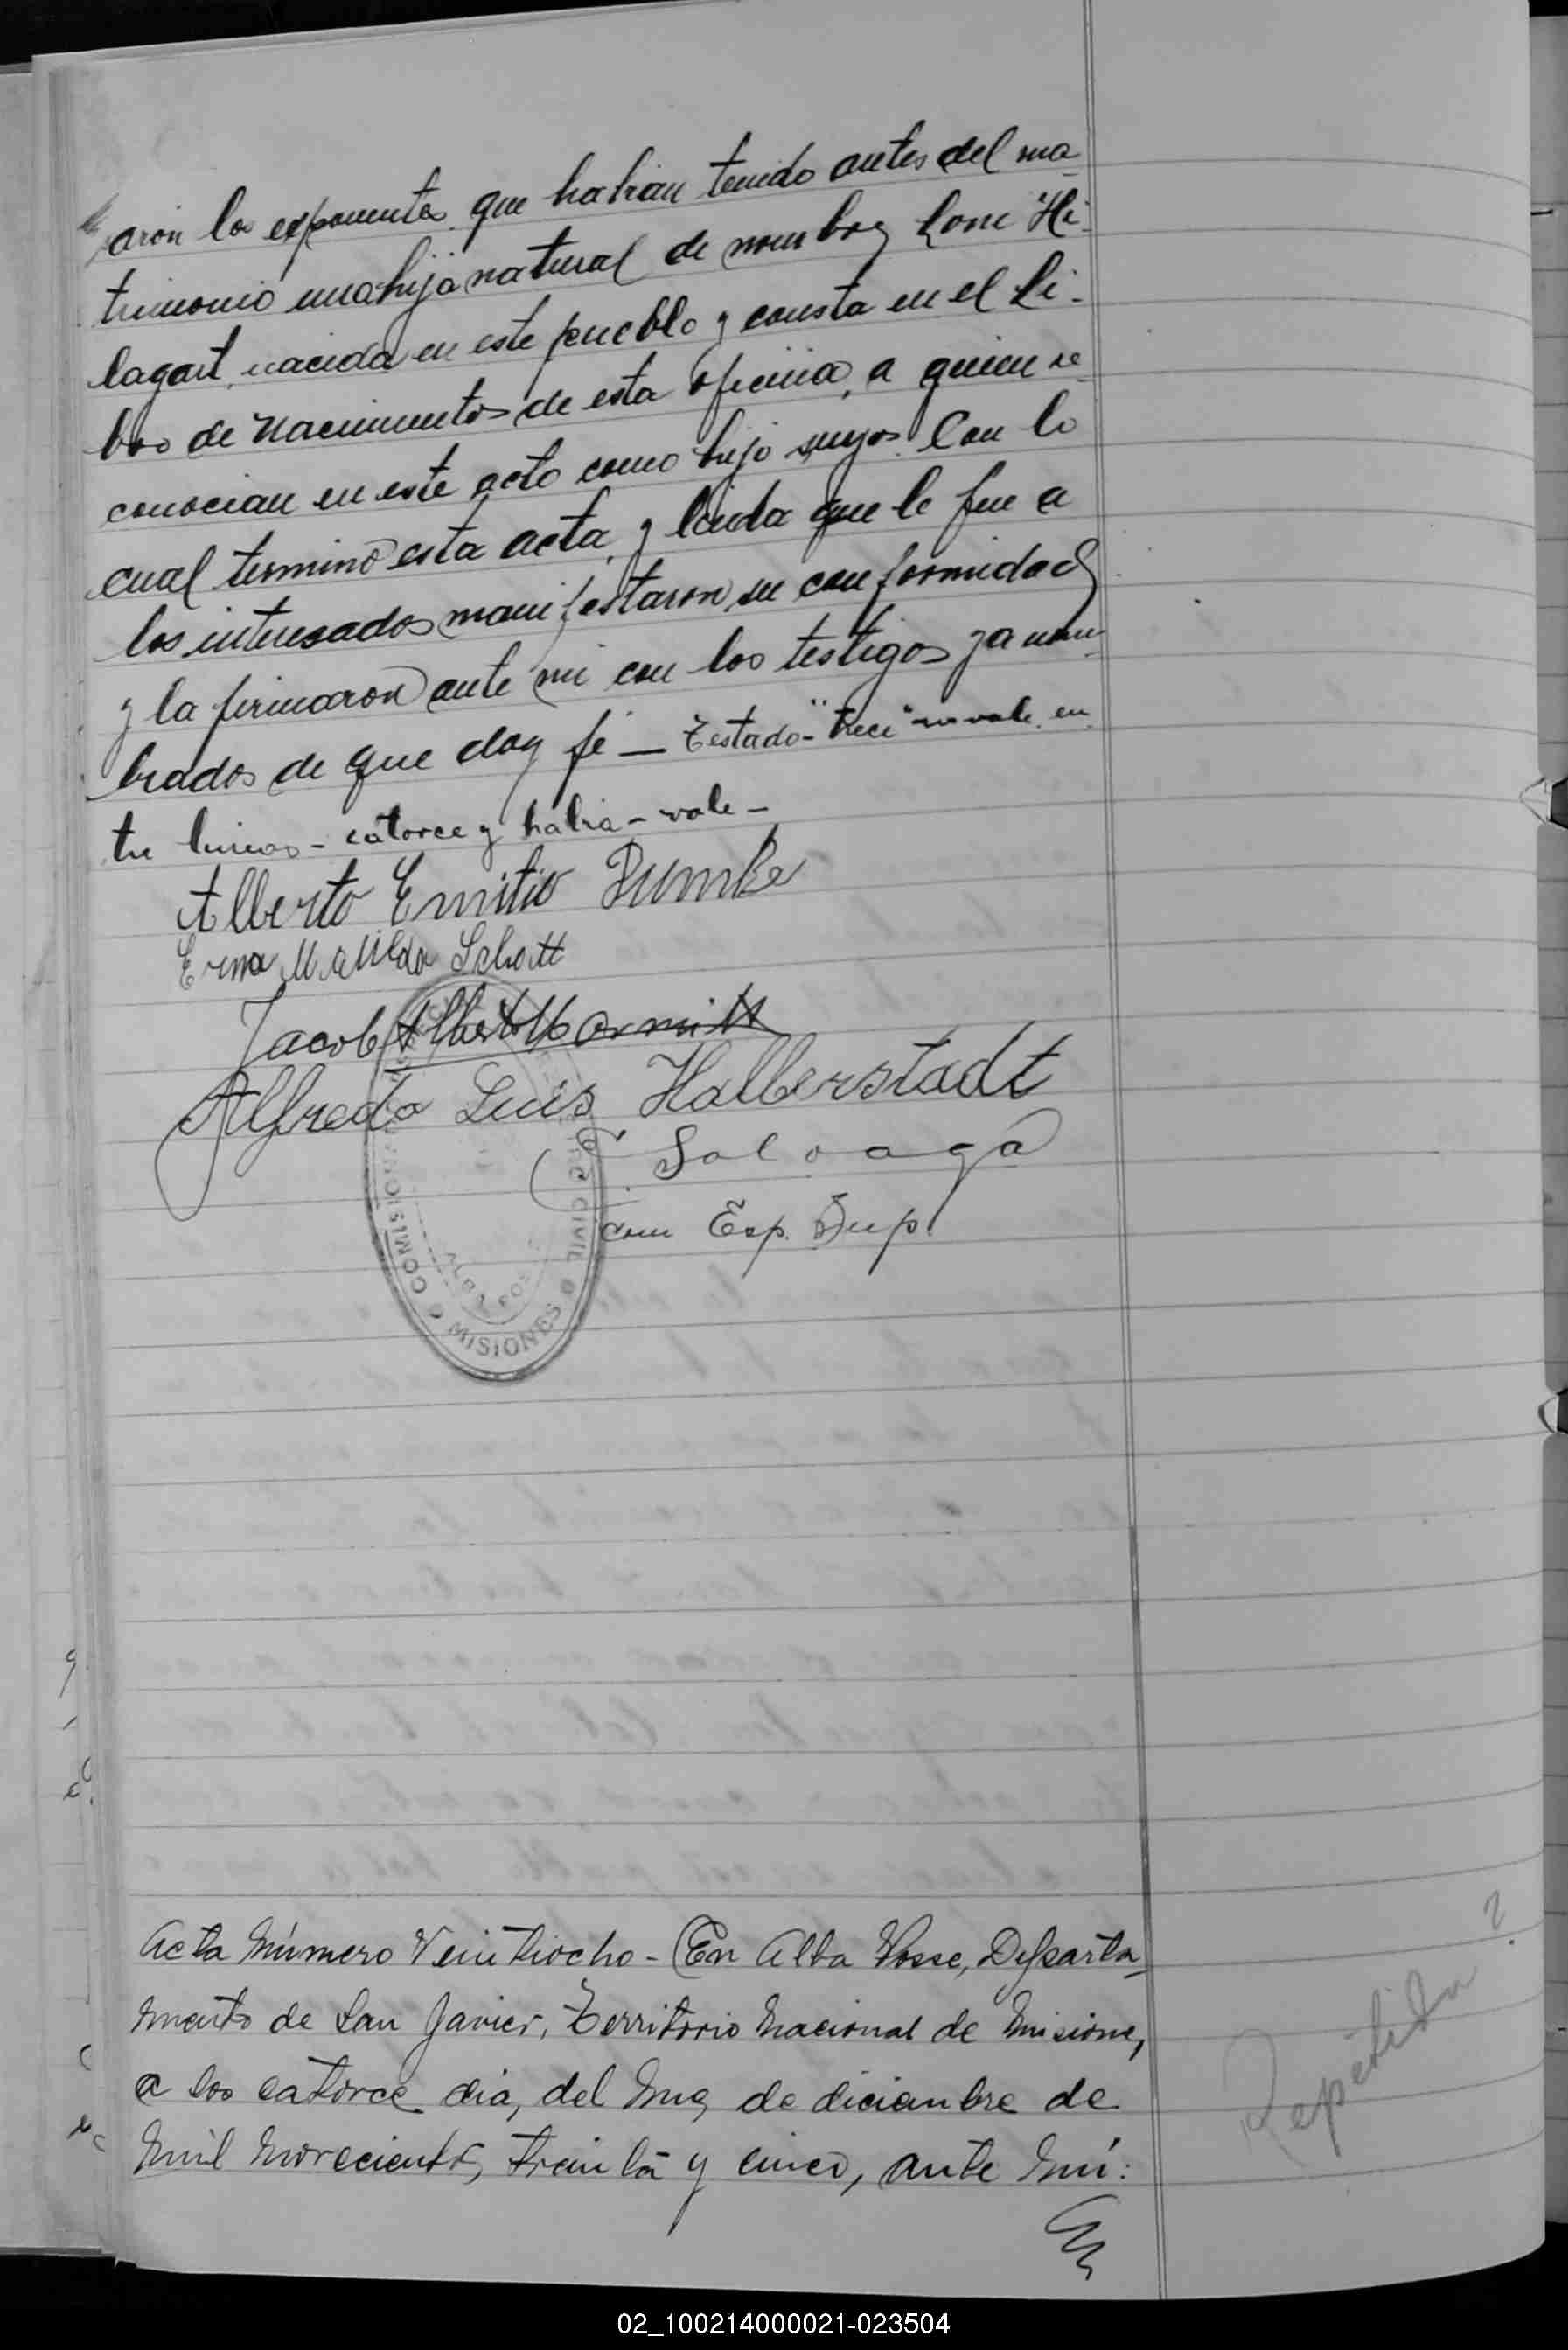 aron los exponentes que habian tenido antes del ma-
trimonio una hija natural de nombre Loni Hi-
lagart, nacida en este pueblo y consta en el Li-
bro de Nacimientos de esta oficina, a quien re-
conocian en este acto como hijo suyos. Con lo
cual terminó esta acta, y leida que le fue a
los interesados manifestaron su conformidad
y la firmaron ante mi con los testigos ya nom-
brados de que doy fé — Testado - "trece" no vale. en
tre lineas - catorce y habia - vale -
Alberto Emilio Rumke
Erma Matilda Schott
Jacob Alberto
Alfredo Luis Halberstadt
Saloaga
com Esp. Sup.
COMISION REGISTRO CIVIL
ALBA POSSE
MISIONES
Acta Número Veintiocho - En Alba Posse, Departa-
mento de San Javier, Territorio Nacional de Misiones,
a los catorce dias, del mes de diciembre de
mil novecientos, treinta y cinco, ante mí:
Repetida ?
02_100214000021-023504